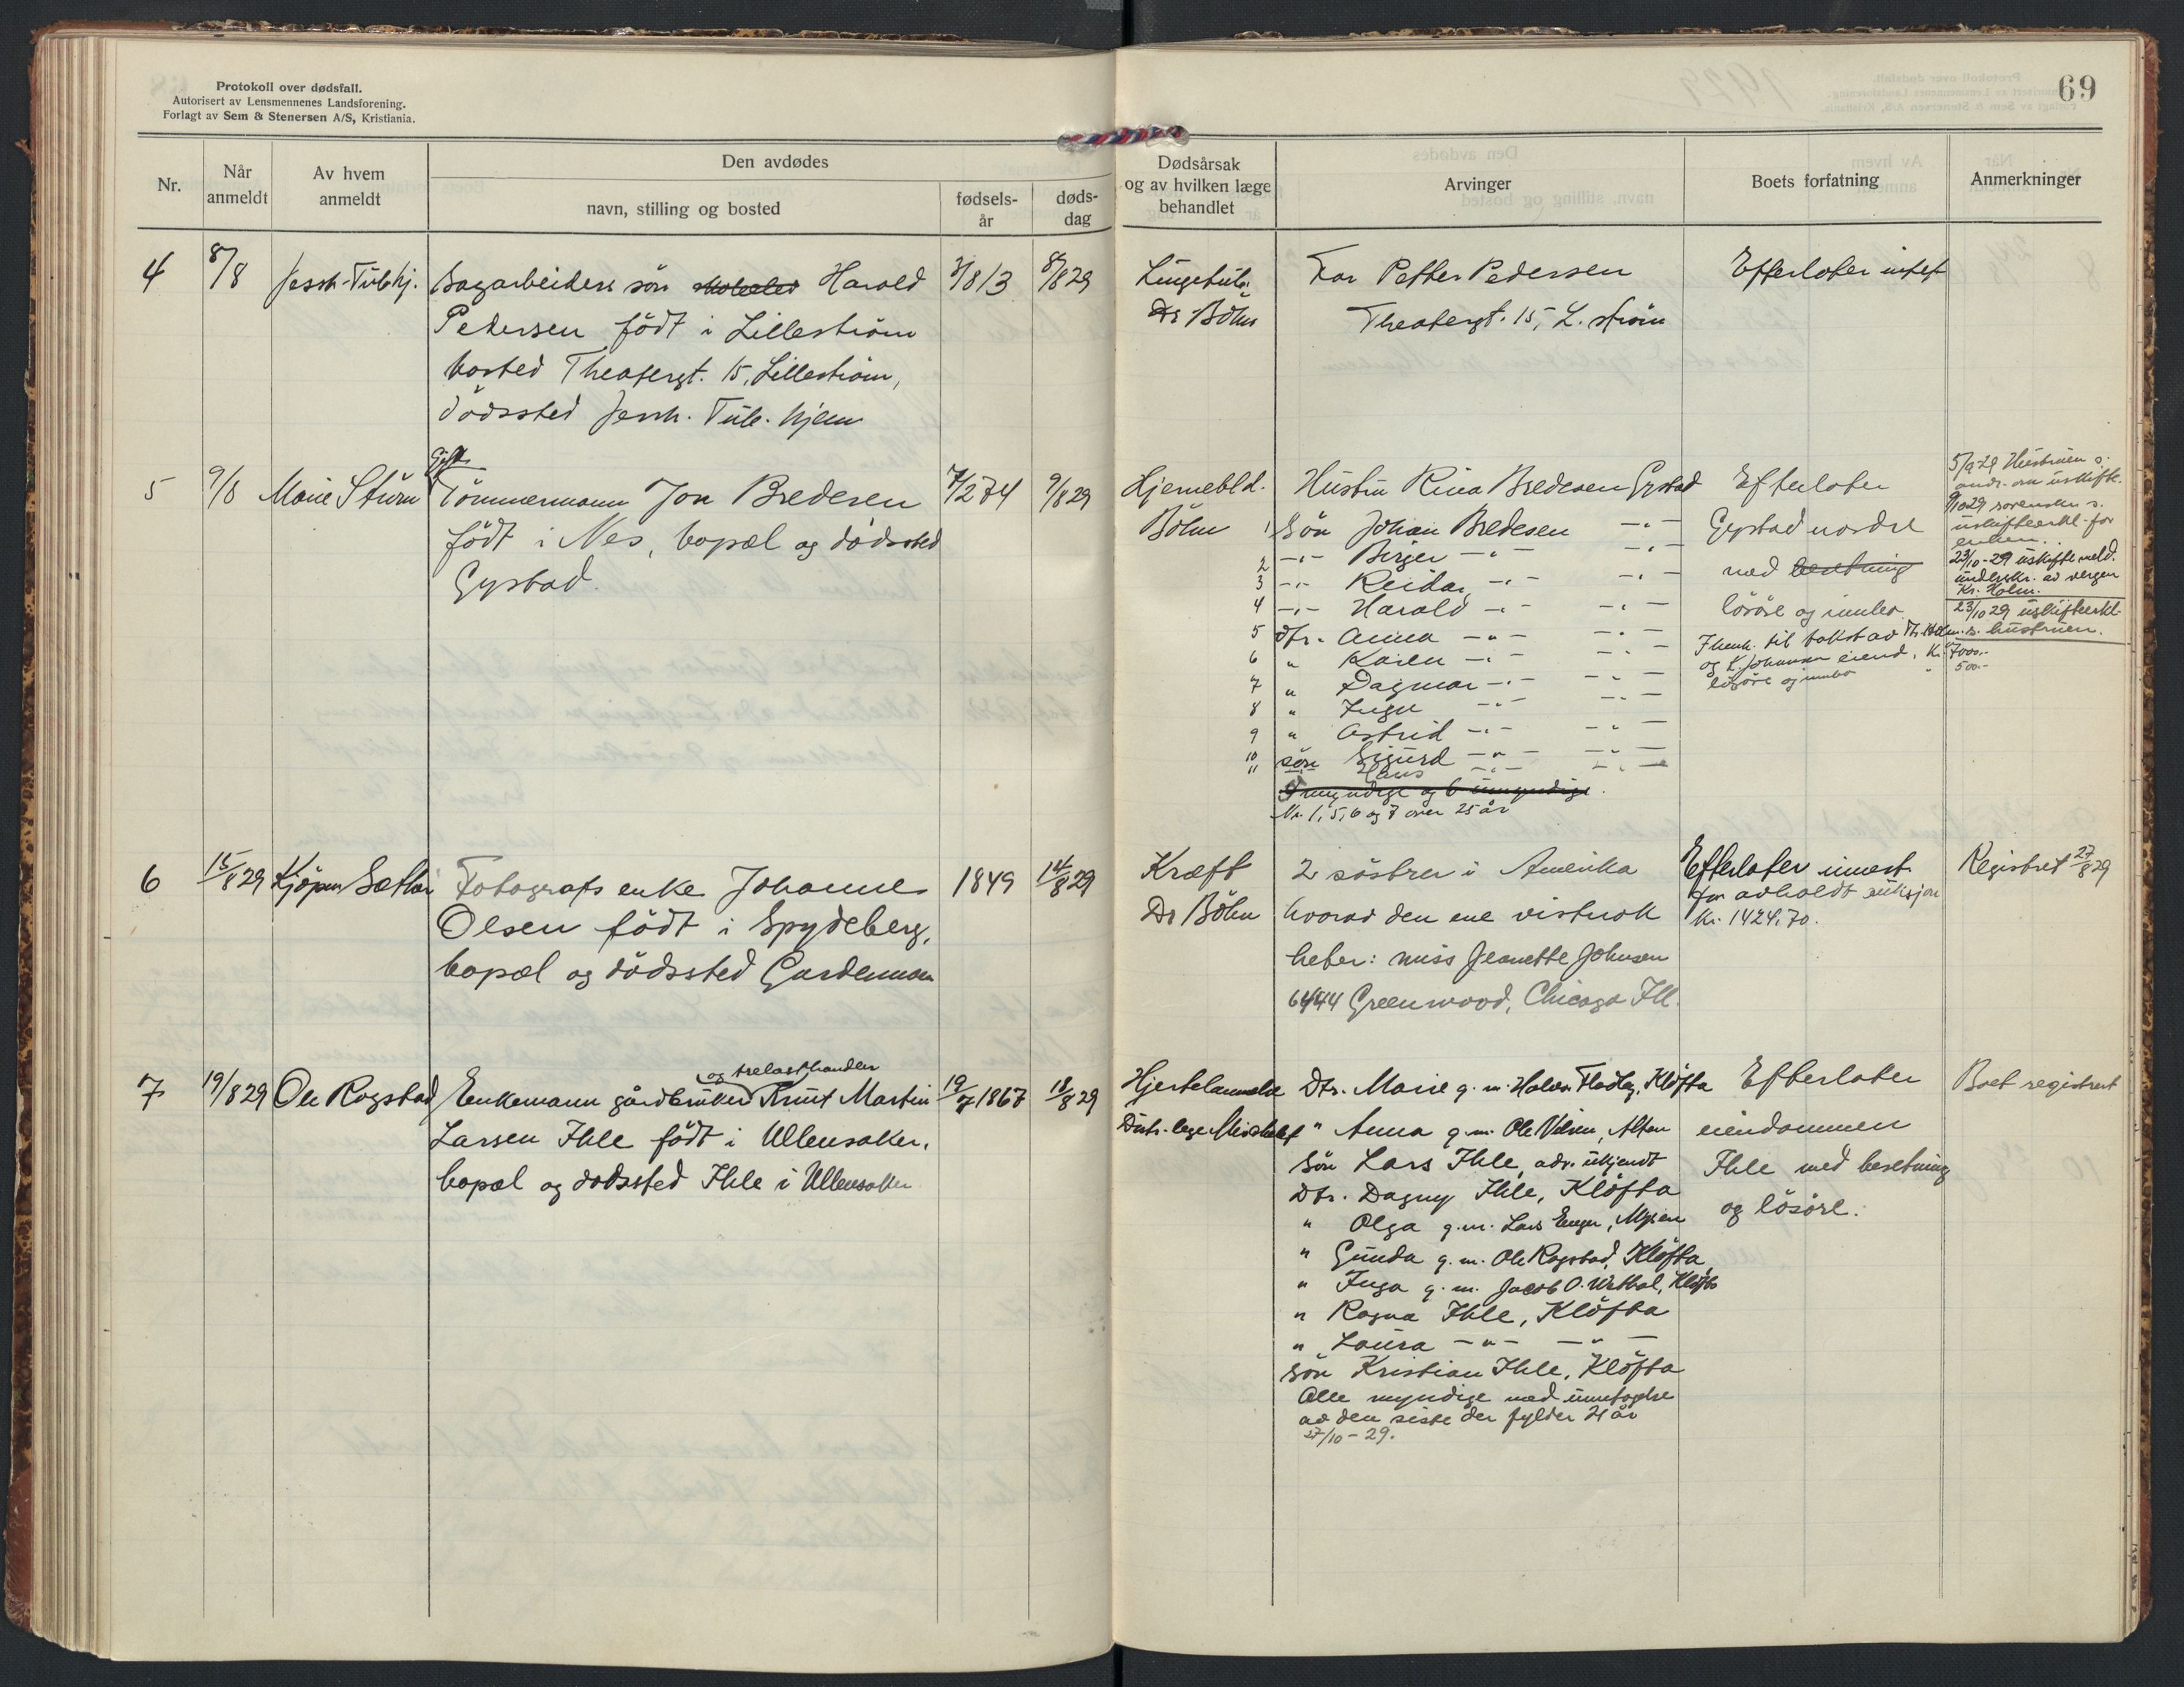 Protokoll over dødsfall.
Autorisert av Lensmennenes Landsforening.
Forlagt av Sem & Stenersen A/S, Kristiania.
69
Nr.
Når anmeldt
Av hvem anmeldt
Den avdødes
navn, stilling og bosted
fødsels-år
døds-dag
Dødsårsak og av hvilken læge behandlet
Arvinger
Boets forfatning
Anmerkninger
4
8/8
Jessh. Tub.hj.
Sagarbeiders sön Harald
Pedersen född i Lilleström
bosted Theatergt. 15, Lilleström,
dödssted Jessh. Tub. hjem
3/8 13
8/8 29
Lungetub.
Dr Böhn
Far Petter Pedersen
Theatergt. 15, L. ström
Efterlater intet
5
9/8
Marie Sturm
Gift
Tömmermann Jon Bredesen
född i Nes, bopæl og dödssted
Gystad.
7/2 74
9/8 29
Hjernebld.
Böhn
Hustru Rina Bredesen Gystad
1 Sön Johan Bredesen -"-
2 -"- Birger -"- -"-
3 -"- Reidar -"- -"-
4 -"- Harald -"- -"-
5 dtr. Anna -"- -"-
6 " Karen -"- -"-
7 " Dagmar -"- -"-
8 " Inger -"- -"-
9 " Astrid -"- -"-
10 sön Sigurd -"- -"-
11 Hans -"- -"-
5 myndige og 6 umyndige.
Nr. 1, 5, 6 og 7 over 25 år
Efterlater
Gystad nordre
med besetning
lösöre og innbo
I henh. til takst av Th. Holm
og K. Johansen eiend. Kr. 7000.-
lösöre og innbo " 500.-
5/9-29 Hustruen s.
andr. om uskifte.
9/10 29 sorenskr. s.
uskifteerkl. for
enken.
23/10-29 uskifte meld.
underskr. av vergen
Kr. Holm.
23/10 29 uskifteerkl.
s. hustruen.
6
15/8 29
Kjöpm. Sæther
Fotografs enke Johanne
Olsen född i Spydeberg,
bopæl og dödssted Gardermoen
1849
14/8 29
Kræft
Dr Böhn
2 söstre i Amerika
hvorav den ene vistnok
heter: miss Jeanette Johnsen
6444 Greenwood, Chicago Ill.
Efterlater
for avholdt auksjon
Kr. 1424,70.
Registret 27/8 29
7
19/8 29
Ole Rogstad
og trelasthandler
Enkemann gårdbruker Knut Martin
Larsen Ihle född i Ullensaker.
bopæl og dödssted Ihle i Ullensaker
19/7 1867
18/8 29
Hjertelammelse
Distr. lege
Dtr. Marie g. m. Halvor Flatby, Klöfta
" Anna g. m. Ole Nilsen, Alten
Sön Lars Ihle, adr. ukjendt
Dtr. Dagny Ihle, Klöfta
" Olga g. m. Lars Enger, Mysen
" Gunda g. m. Ole Rogstad, Klöfta
" Inga g. m. Jacob O. Vestbal, Klöfta
" Ragna Ihle, Klöfta
" Laura -"- -"-
Sön Kristian Ihle, Klöfta
Alle myndige med unntagelse
av den siste der fylder 21 år
27/10-29.
Efterlater
eiendommen
Ihle med besetning
og lösöre.
Boet registrert